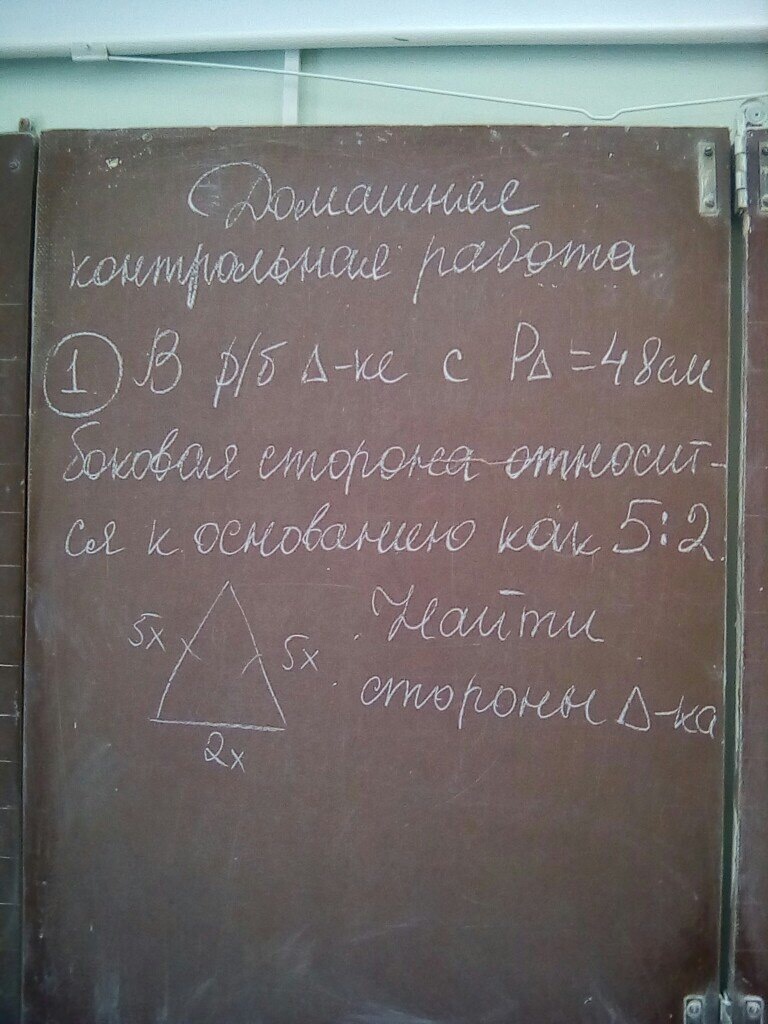 Домашняя
контрольная работа
1 В р/б Δ-ке с PΔ = 48см
боковая сторона относит-
ся к основанию как 5:2.
5x 5x Найти
стороны Δ-ка
2x